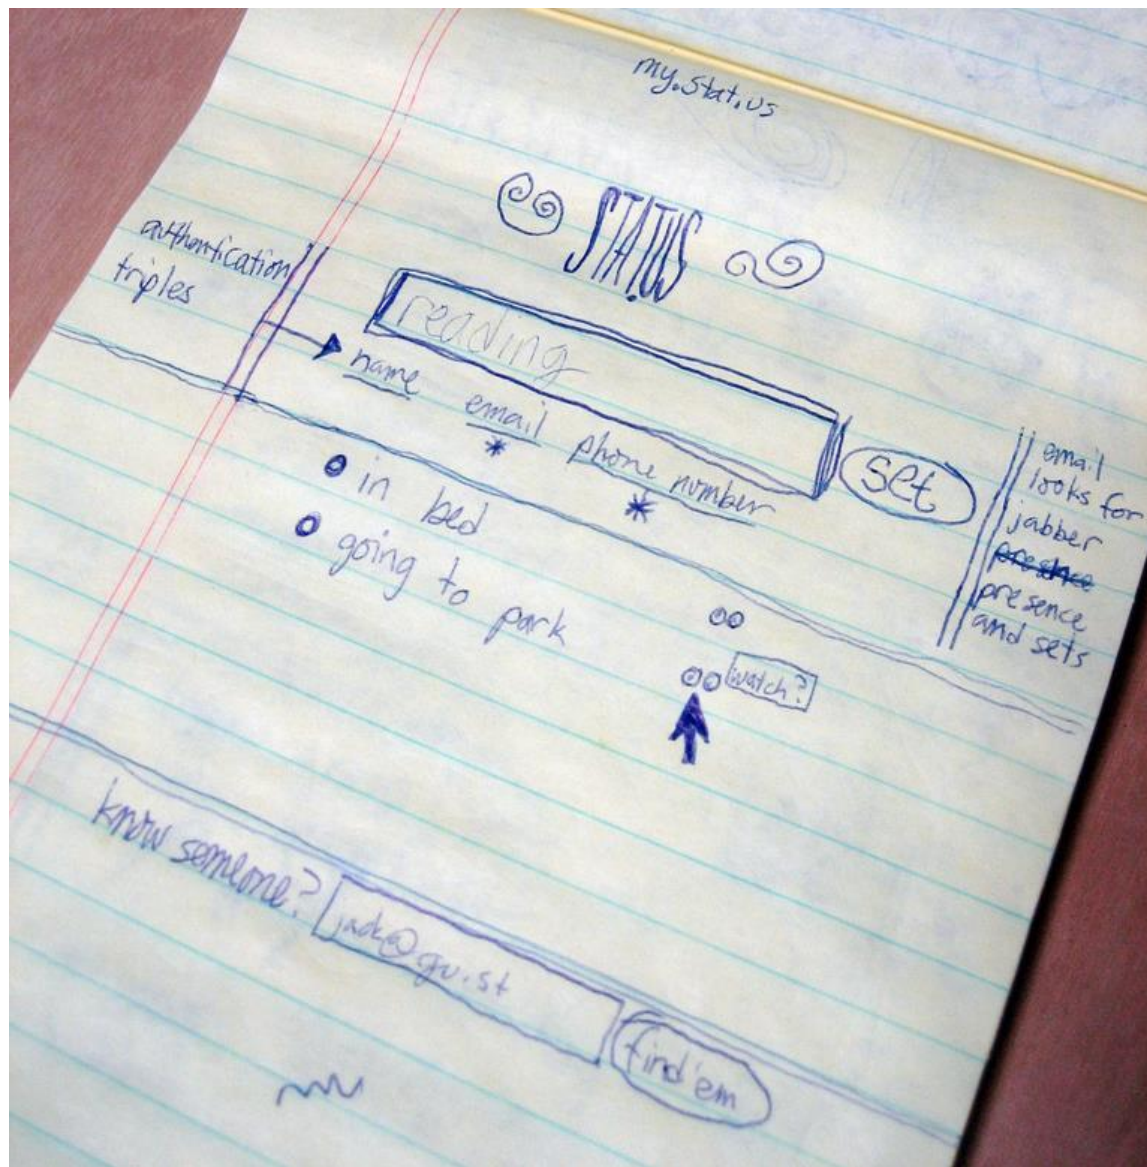 my.stat.us
STAT.US
authentication
triples
reading
name email phone number
set
in bed
going to park
email
looks for
jabber
presence
presence
and sets
watch?
know someone? jack@gu.st
find 'em